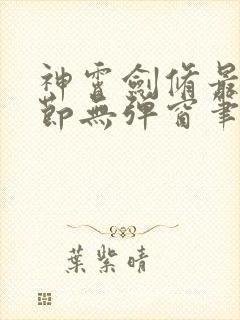 神雷劍脩最
節無彈窗筆
葉紫晴